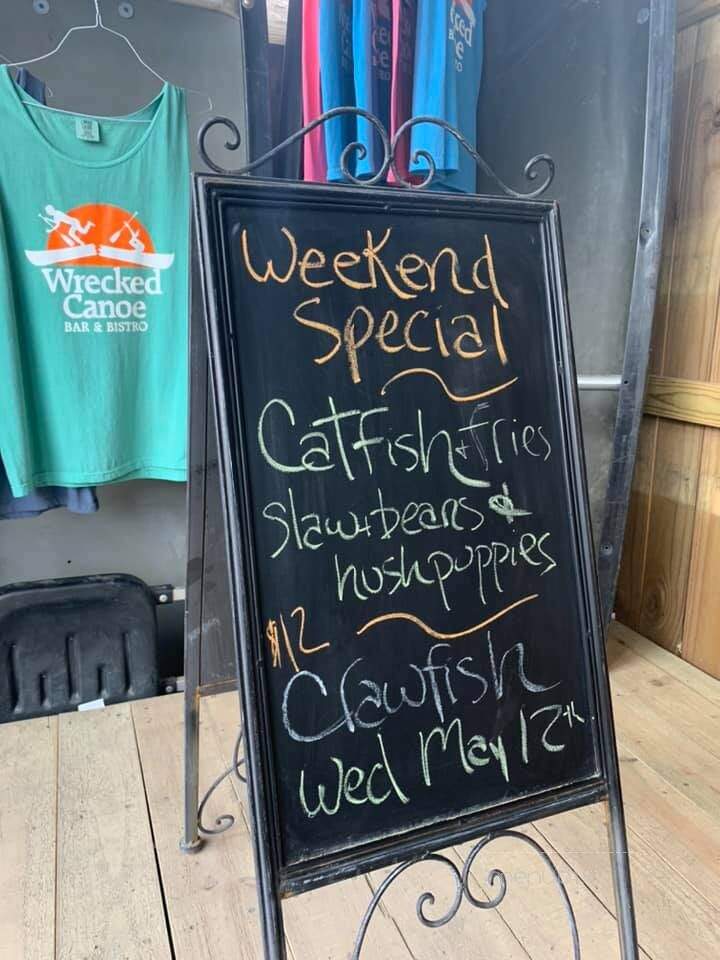 Wrecked
Canoe
BAR & BISTRO
Weekend
Special
Catfish + fries
Slaw + beans &
hushpuppies
$12
Crawfish
Wed May 12th.